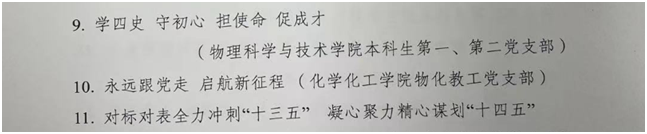 9. 学四史 守初心 担使命 促成才
（物理科学与技术学院本科生第一、第二党支部）
10. 永远跟党走 启航新征程（化学化工学院物化教工党支部）
11. 对标对表全力冲刺“十三五” 凝心聚力精心谋划“十四五”